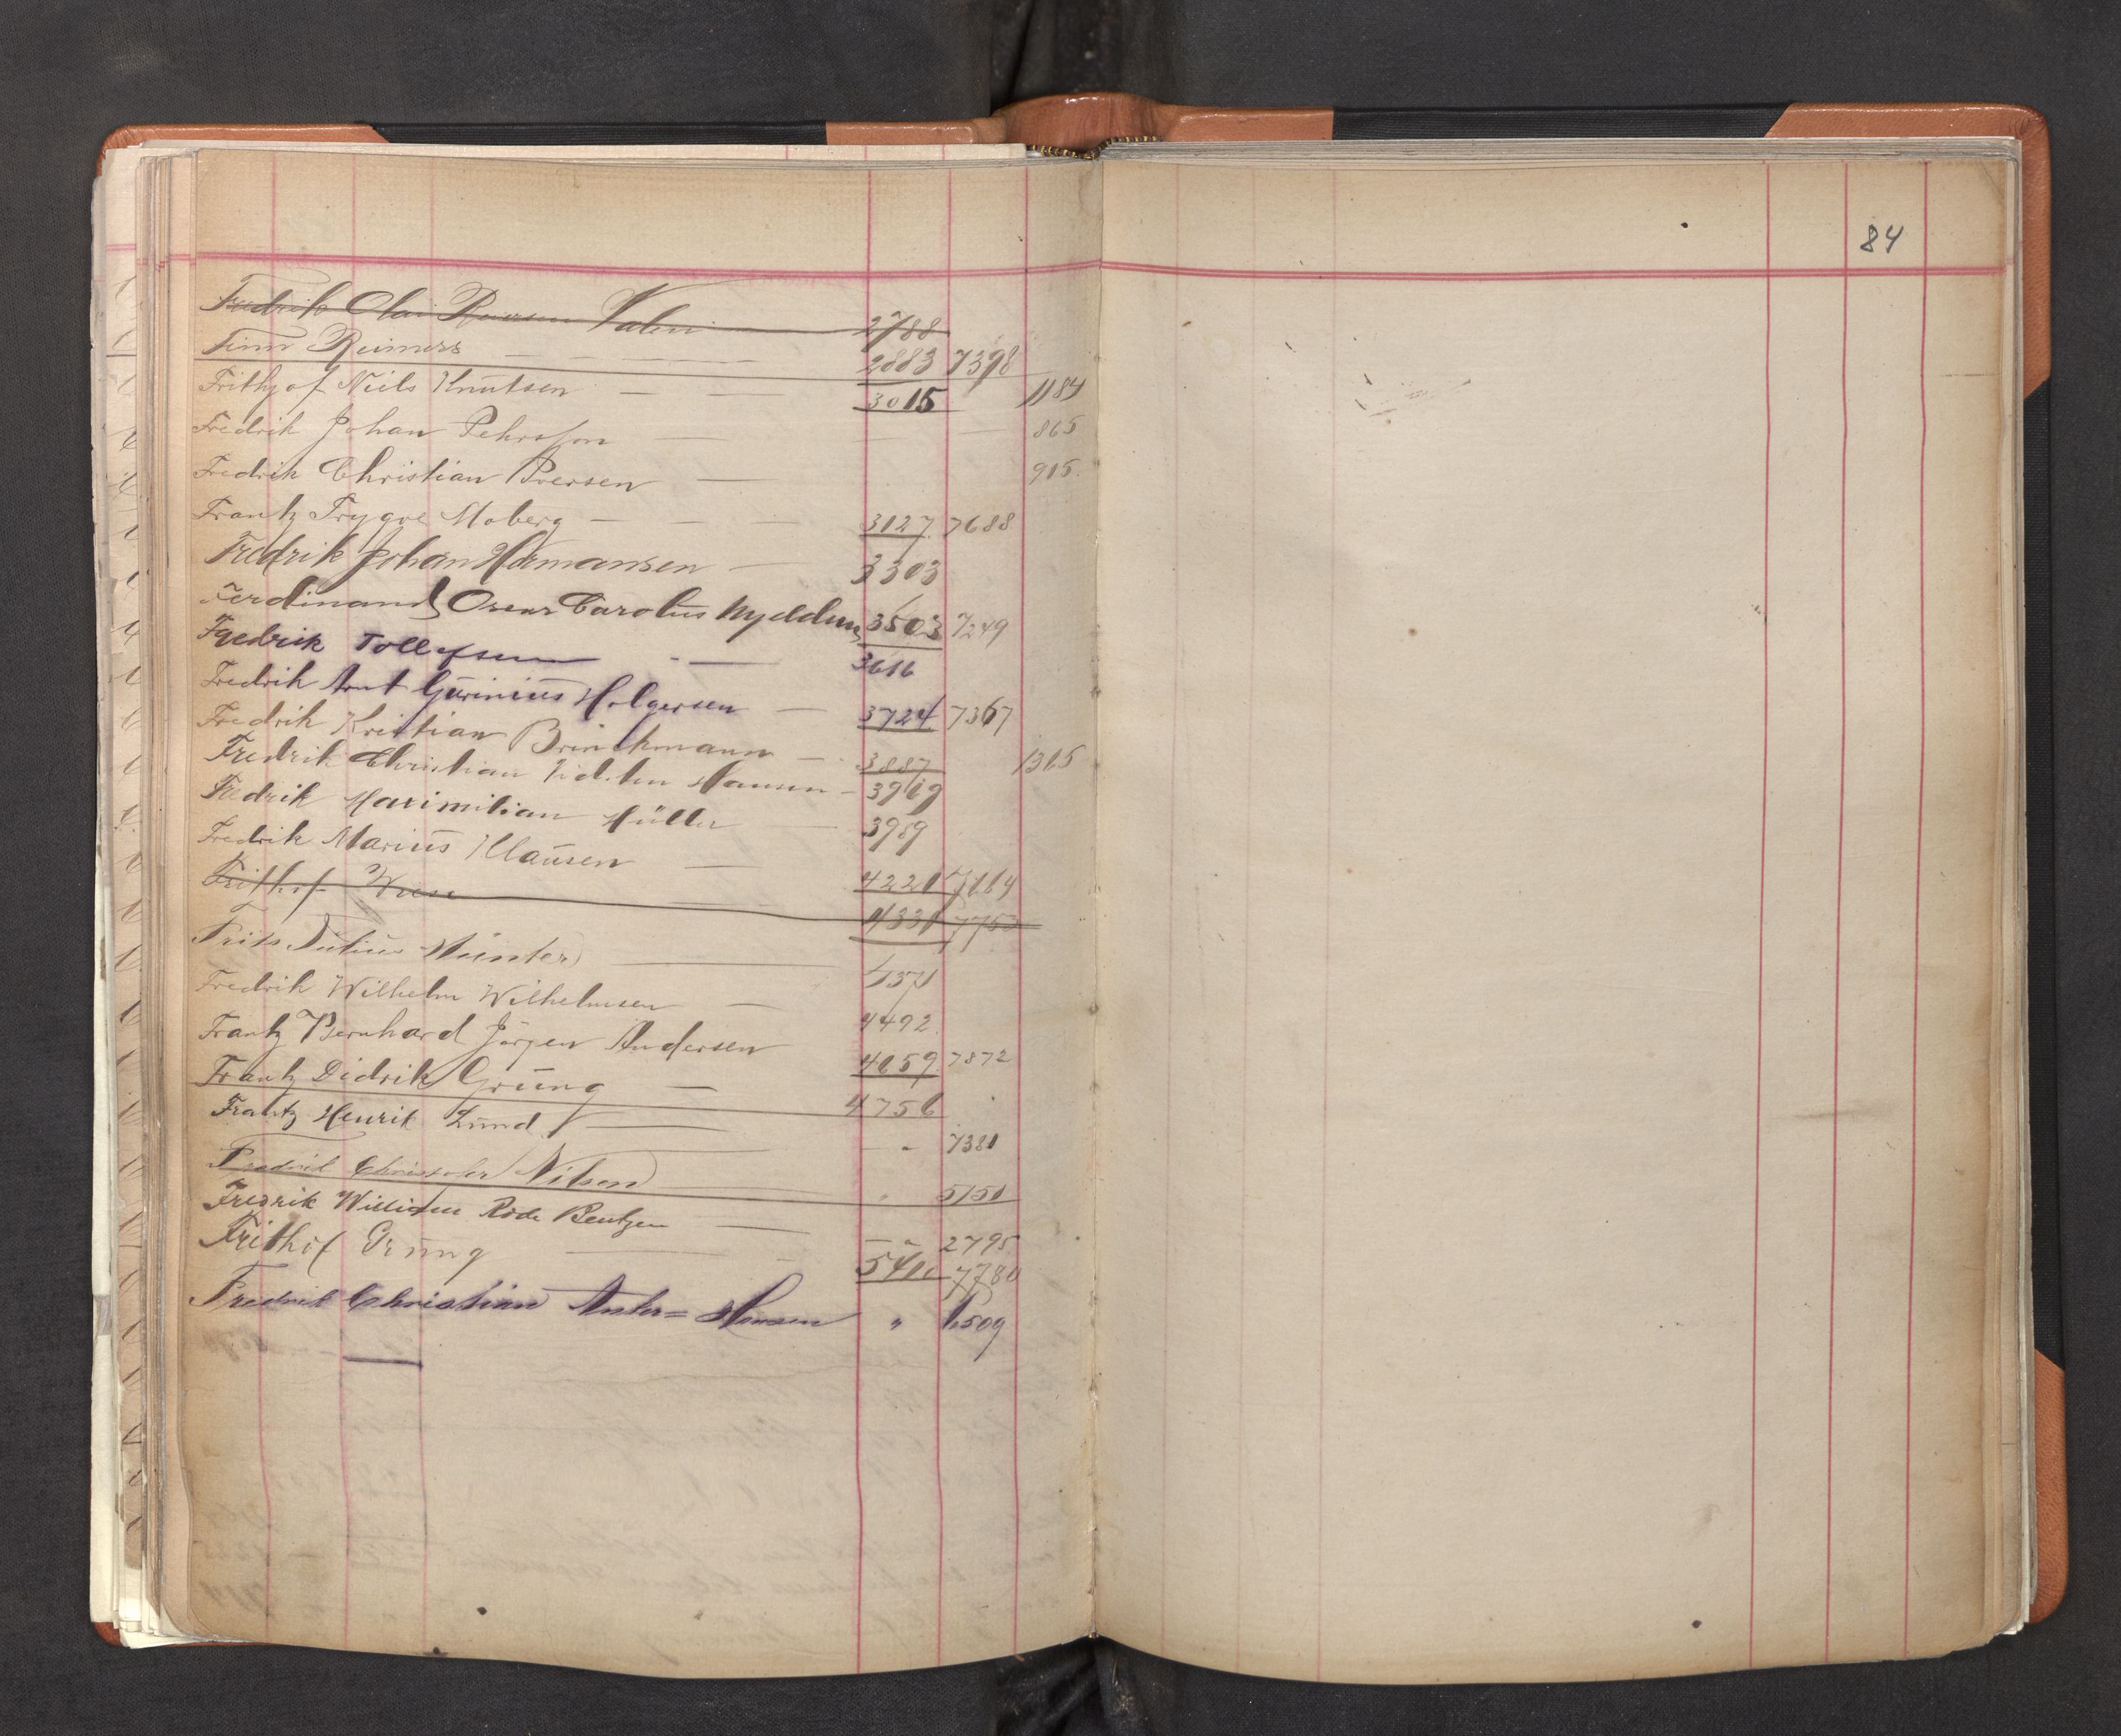 Fredrik Olai Valen 2788
Finn Reimers 2883 7398
Frithjof Niels Knutsen 3015 1184
Fredrik Johan Pehrsson 865
Fredrik Christian Iversen 905
Frantz Trygve Moberg 3127 7688
Fredrik Johan Hermansen 3303
Ferdinand Oscar Carolus 3503 7249
Fredrik Tollefsen 3616
Fredrik Arnt Gurinius Holgersen 3724 7367
Fredrik Kristian Brinckmann 3887 1365
Fredrik Christian Hansen 3969
Fredrik Maximilian Müller 3989
Fredrik Marius Klausen 4221 7164
Frithof Wiese 4331 7753
Frits Julius Münter 4371
Fredrik Wilhelm Wilhelmsen 4492
Frantz Bernhard Jörgen Andersen 4659 7872
Frantz Didrik Grung 4756
Frantz Henrik Lund " 7381
Fredrik Christofer Nilsen " 5151
Fredrik William Rode Bentzen " 2795
Frithof Grung 5410 7780
Fredrik Christian Anker= Hansen " 6509
84